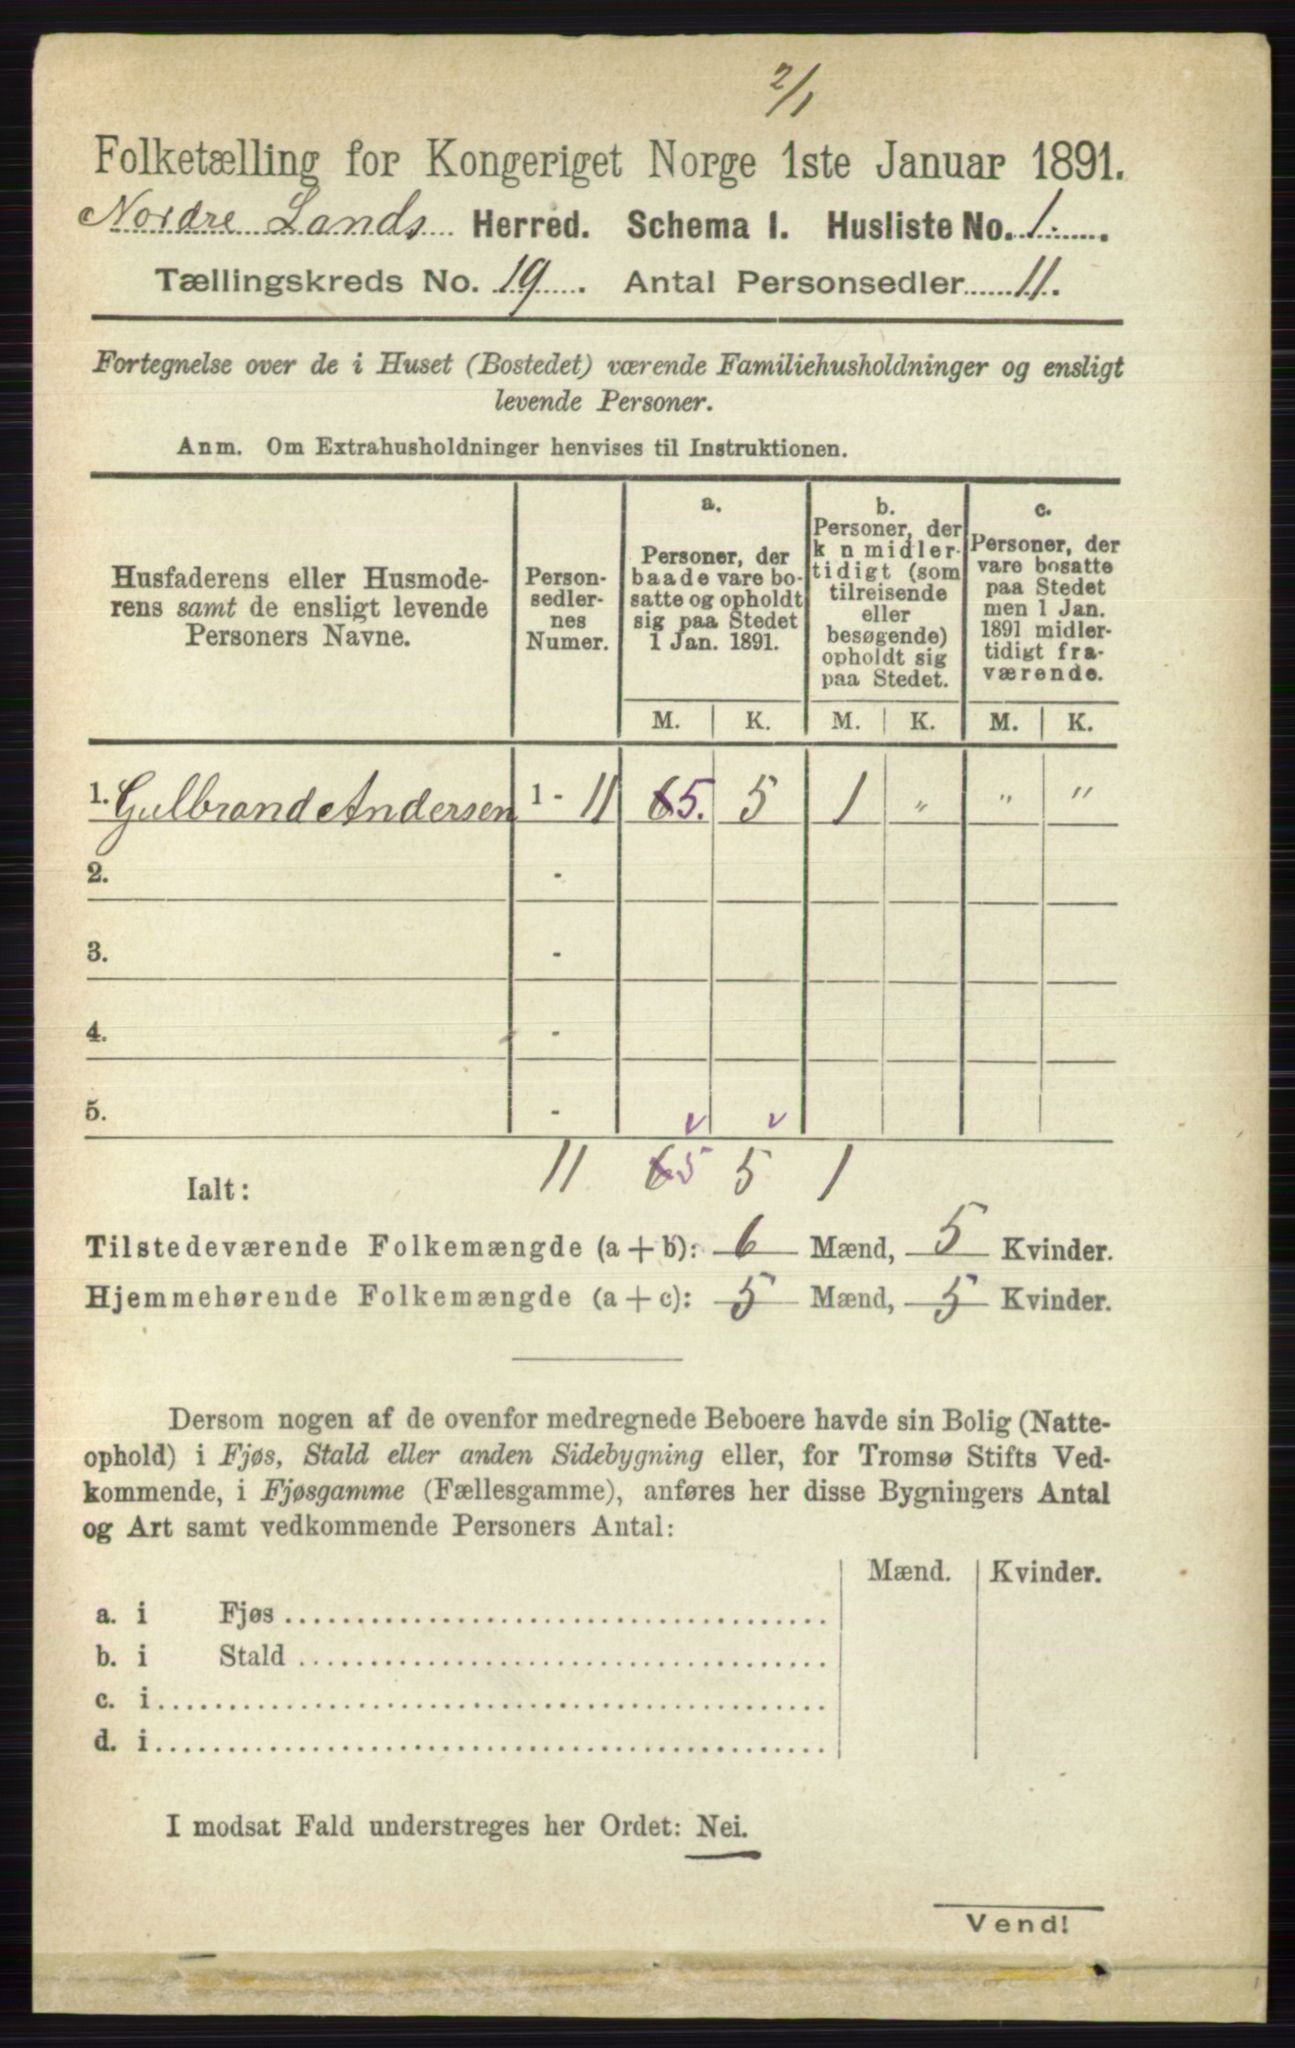 2/1
Folketælling for Kongeriget Norge 1ste Januar 1891.
Nordre Lands Herred. Schema I. Husliste No. 1.
Tællingskreds No. 19. Antal Personsedler 11.
Fortegnelse over de i Huset (Bostedet) værende Familiehusholdninger og ensligt
levende Personer.
Anm. Om Extrahusholdninger henvises til Instruktionen.
Husfaderens eller Husmode-
rens samt de ensligt levende
Personers Navne.
Person-
sedler-
nes
Numer.
a.
Personer, der
baade vare bo-
satte og opholdt
sig paa Stedet
1 Jan. 1891.
b.
Personer, der
k n midler-
tidigt (som
tilreisende
eller
besøgende)
opholdt sig
paa Stedet.
c.
Personer, der
vare bosatte
paa Stedet
men 1 Jan.
1891 midler-
tidigt fra-
værende.
M. K. M. K. M. K.
1. Gulbrand Andersen 1 - 11 65. 5 1 " " "
2. -
3. -
4. -
5. -
Ialt: 11 65 5 1
Tilstedeværende Folkemængde (a + b): 6 Mænd, 5 Kvinder.
Hjemmehørende Folkemængde (a + c): 5 Mænd, 5 Kvinder.
Dersom nogen af de ovenfor medregnede Beboere havde sin Bolig (Natte-
ophold) i Fjøs, Stald eller anden Sidebygning eller, for Tromsø Stifts Ved-
kommende, i Fjøsgamme (Fællesgamme), anføres her disse Bygningers Antal
og Art samt vedkommende Personers Antal:
Mænd. Kvinder.
a. i Fjøs
b. i Stald
c. i
d. i
I modsat Fald understreges her Ordet: Nei.
Vend!